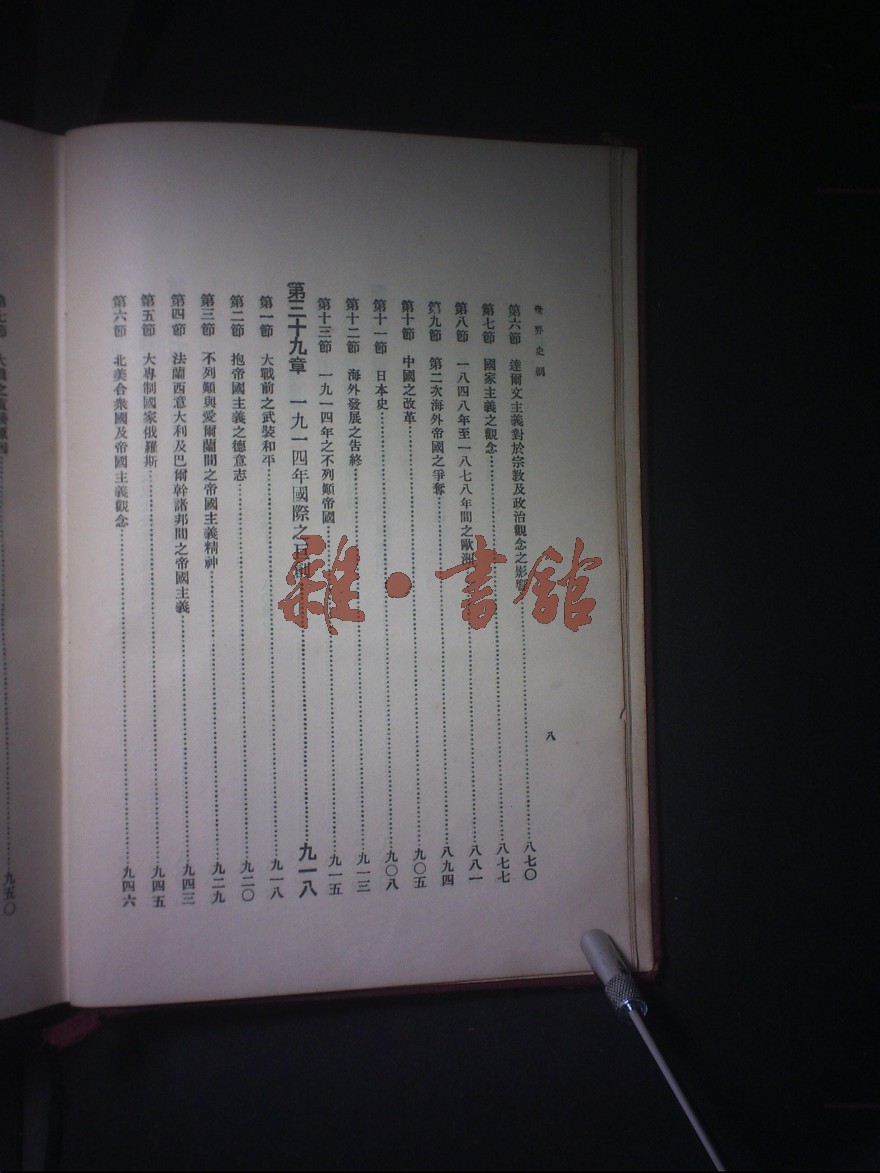 世界史綱
八
第六節 達爾文主義對於宗教及政治觀念之影響……八七〇
第七節 國家主義之觀念……八七七
第八節 一八四八年至一八七八年間之歐洲……八八一
第九節 第二次海外帝國之爭奪……八九四
第十節 中國之改革……九〇五
第十一節 日本史……九〇八
第十二節 海外發展之告終……九一三
第十三節 一九一四年之不列顛帝國……九一五
第三十九章 一九一四年國際之……九一八
第一節 大戰前之武裝和平……九一八
第二節 抱帝國主義之德意志……九二〇
第三節 不列顛與愛爾蘭間之帝國主義精神……九二九
第四節 法蘭西意大利及巴爾幹諸邦間之帝國主義……九四三
第五節 大專制國家俄羅斯……九四五
第六節 北美合衆國及帝國主義觀念……九四六
第七節 大戰之……九五〇
雜·書館